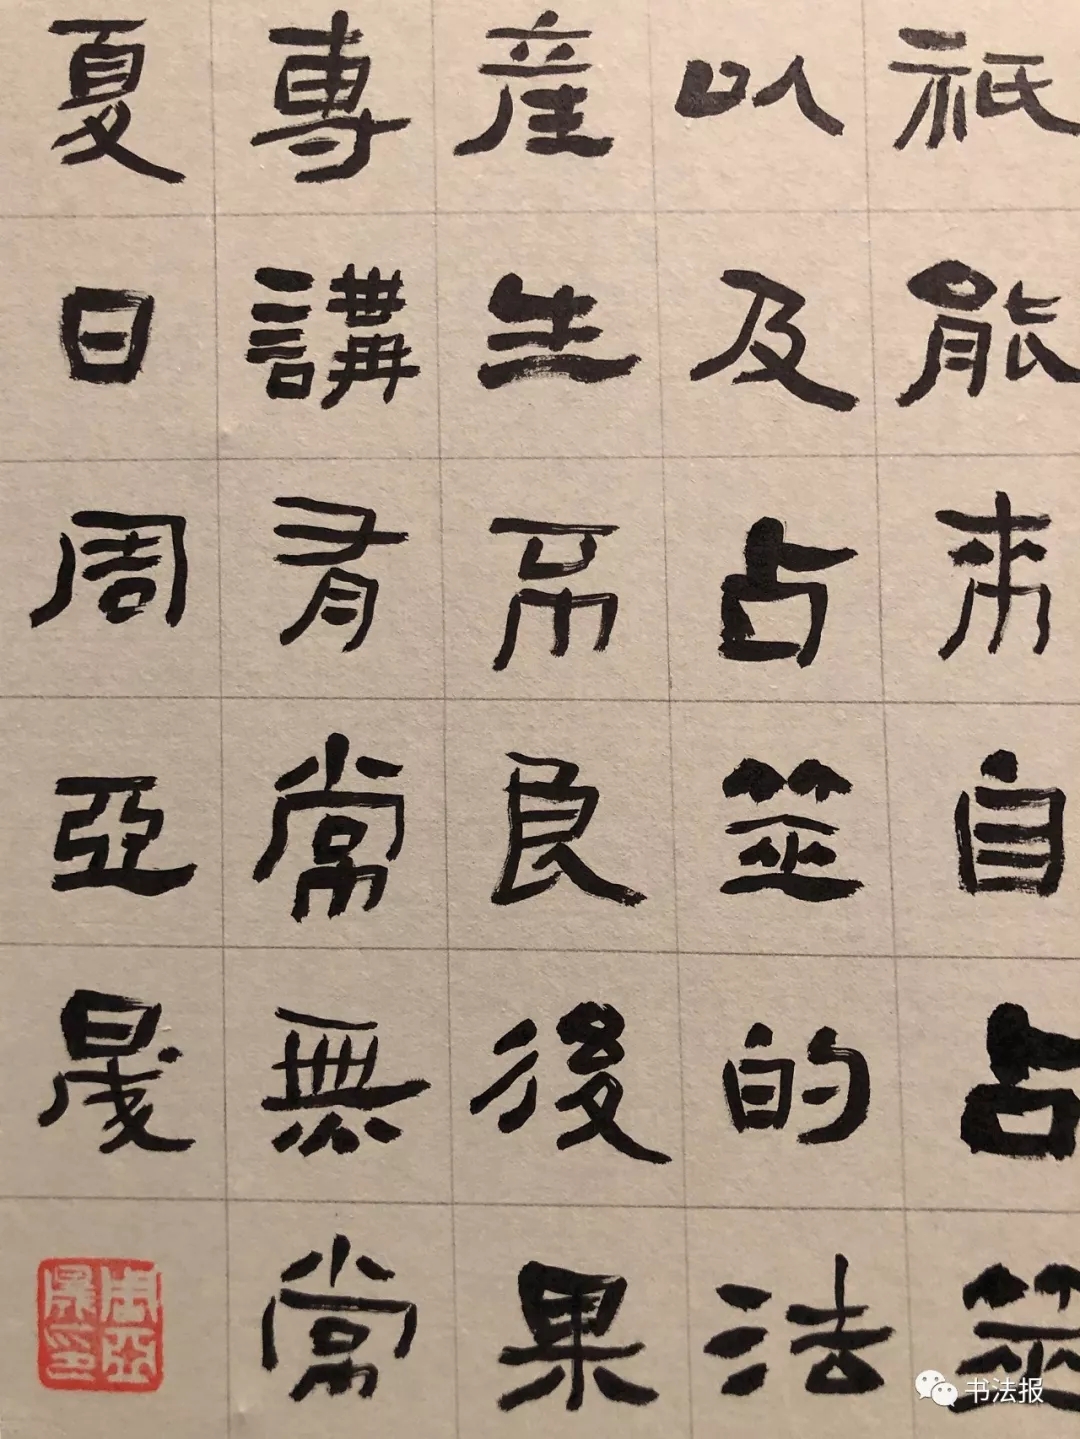 祇能來自占筮
以及占筮的法
產生不良後果
專講有常無常
夏日周亞晟
周亞晟印
书法报